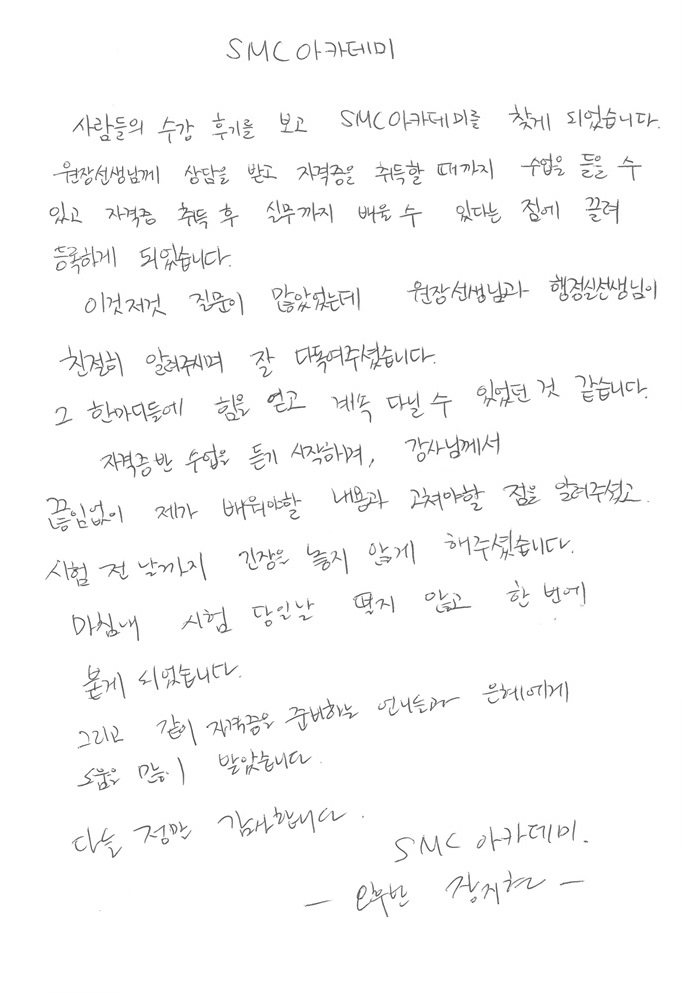 SMC아카데미
사람들의 수강 후기를 보고 SMC아카데미를 찾게 되었습니다.
원장선생님께 상담을 받고 자격증을 취득할 때까지 수업을 들을 수
있고 자격증 취득 후 실무까지 배울 수 있다는 점에 끌려
등록하게 되었습니다.
이것저것 질문이 많았었는데 원장선생님과 행정실선생님이
친절히 알려주시며 잘 다독여주셨습니다.
그 한마디들에 힘을 얻고 계속 다닐 수 있었던 것 같습니다.
자격증반 수업을 듣기 시작하며, 강사님께서
끊임없이 제가 배워야할 내용과 고쳐야할 점을 알려주셨고.
시험 전 날까지 긴장을 놓지 않게 해주셨습니다.
마침내 시험 당일날 떨지 않고 한 번에
붙게 되었습니다.
그리고 같이 자격증을 준비하는 언니들과 은혜에게
도움을 많이 받았습니다.
다들 정말 감사합니다.
SMC 아카데미.
- 장지현 -